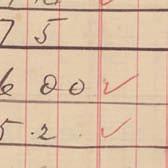 7 5
6 0 0 ✓
5 . 2 . ✓